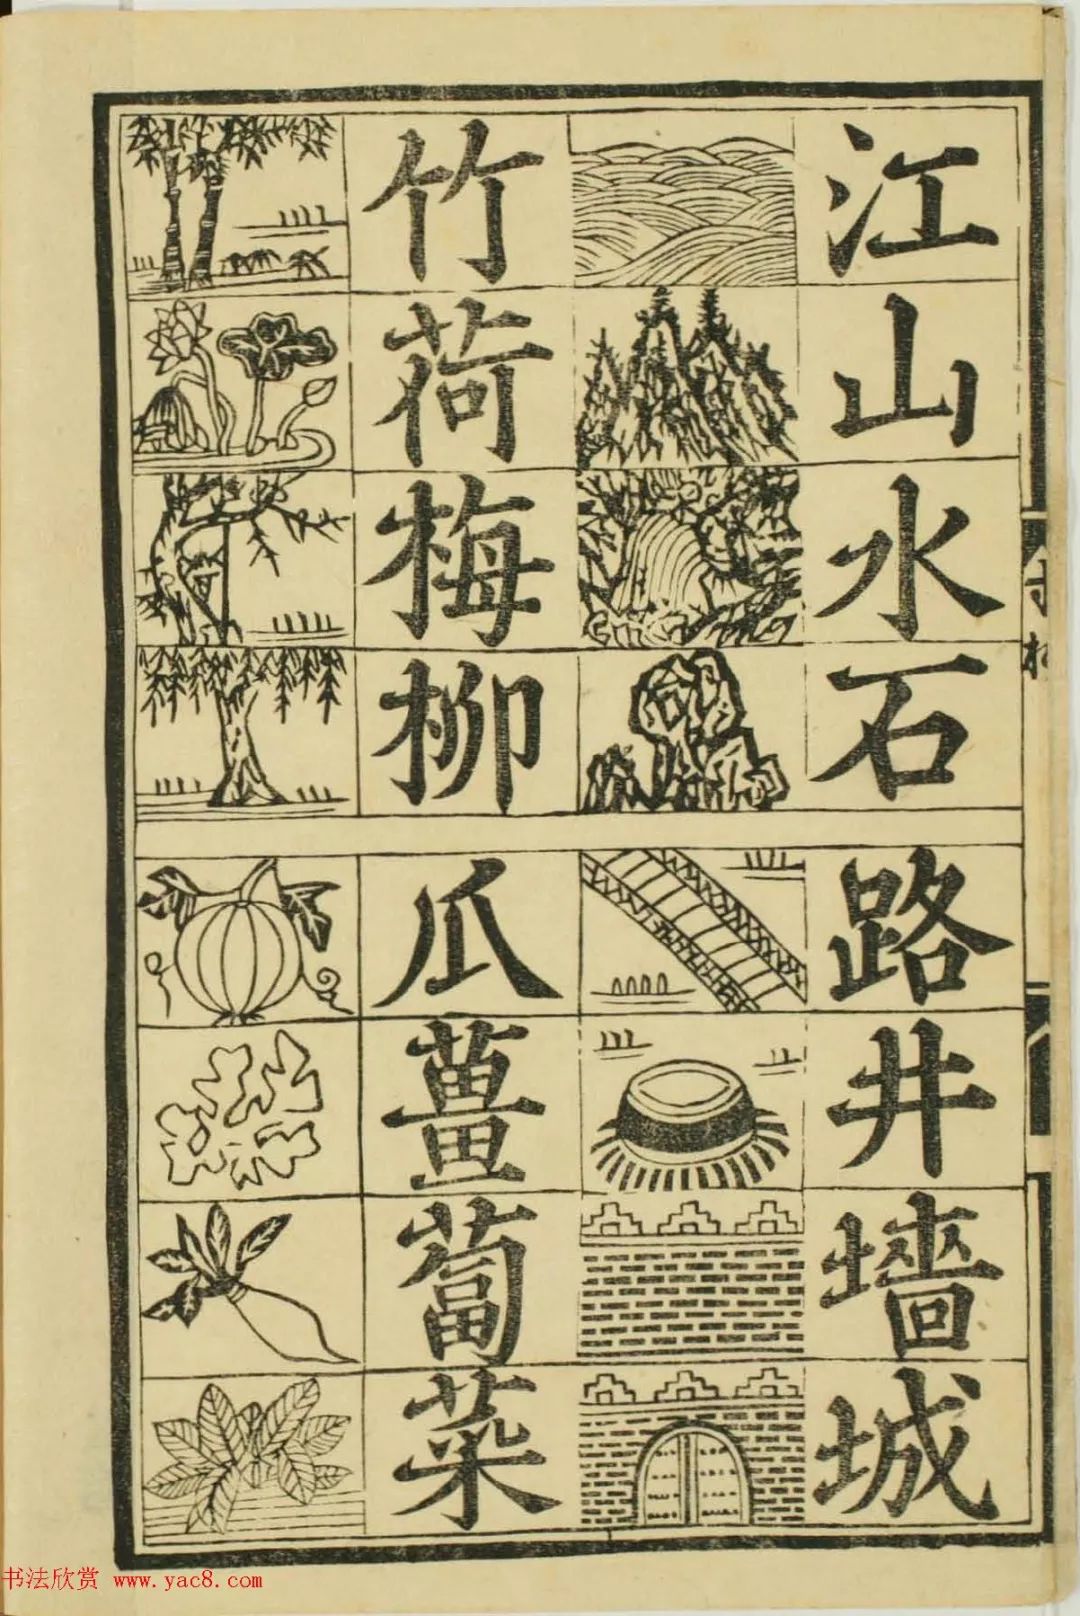 江山水石
竹荷梅柳
路井墻城
瓜薑蔔菜
书法欣赏 www.yac8.com